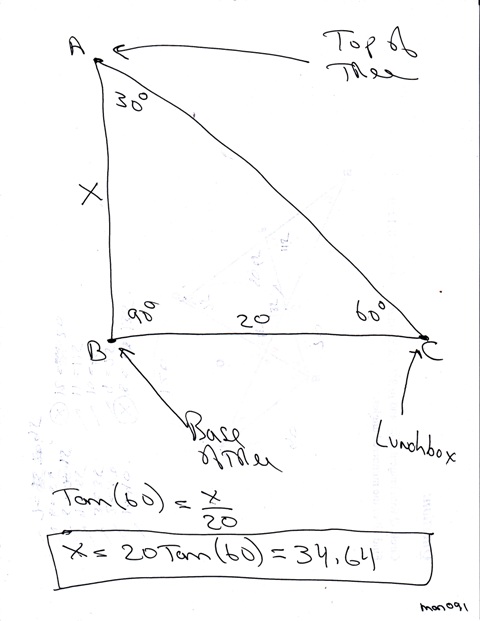 A
Top of
Tree
30°
X
90°
20
60°
B
C
Base
of Tree
Lunchbox
Tan(60) = X/20
X = 20Tan(60) = 34.64
mon091